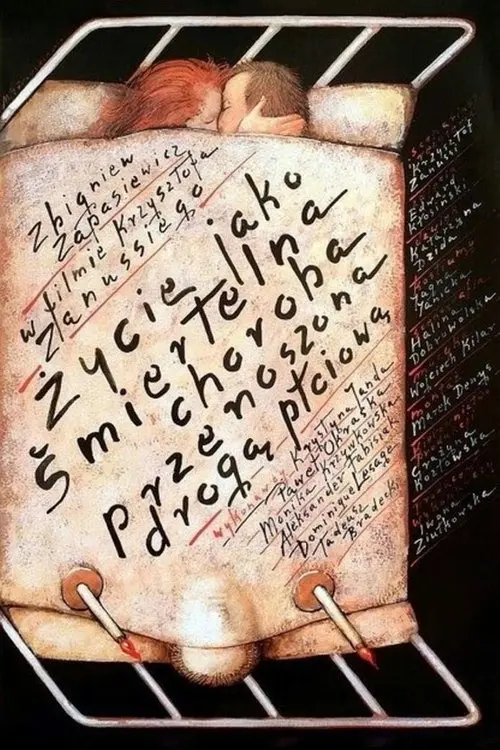 Zbigniew
Zapasiewicz
w filmie Krzysztofa
Zanussiego
Życie jako
Śmiertelna
choroba
przenoszona
drogą płciową
wykonawcy Krystyna Janda
Paweł Okraska
Monika Krzywkowska
Aleksander Fabisiak
Dominique Lesage
Tadeusz
Bradecki
scenariusz
Krzysztof
Zanussi
Edward
Kłosiński
Halina
Dobrowolska
Wojciech Kilar
Marek Denys
Grażyna
Kozłowska
Iwona
Ziułkowska